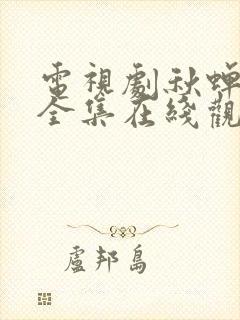 電視劇秋蟬
全集在綫觀
盧邦島